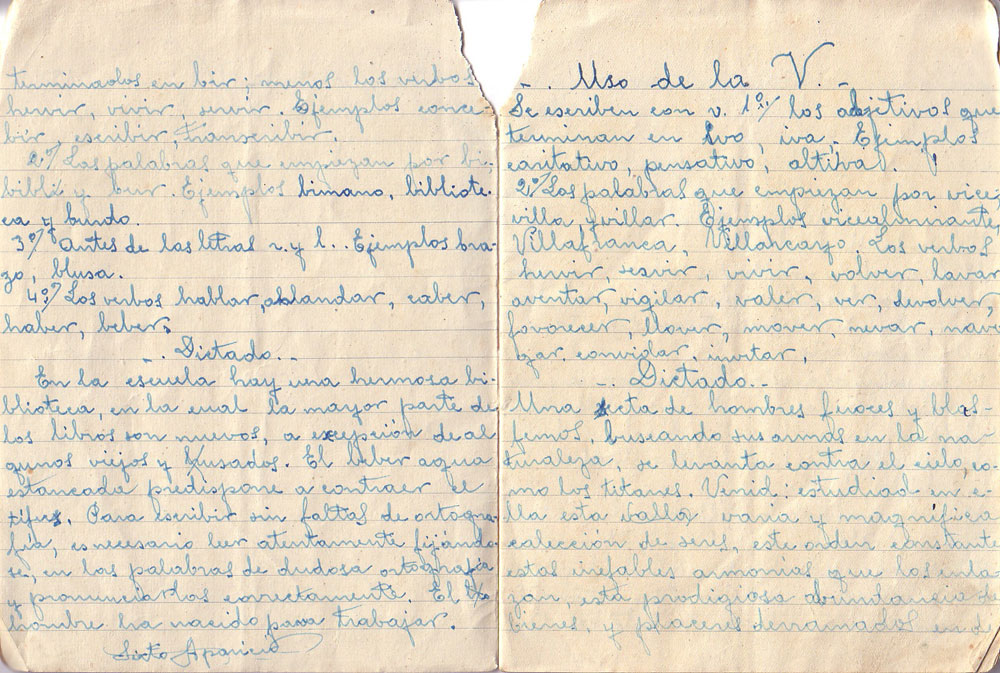 terminados en bir; menos los verbos
hervir, vivir, servir. Ejemplos conce-
bir, escribir, transcribir.
2º/ Las palabras que empiezan por bi-
bibli y bur. Ejemplos bimano, bibliote-
ca y burdo
3º/ Antes de las letras r. y l.. Ejemplos bra-
zo, blusa.
4º/ Los verbos hablar, ablandar, caber,
haber, beber.
-. Dictado.-
En la escuela hay una hermosa bi-
blioteca, en la cual la mayor parte de
los libros son nuevos, a excepción de al
gunos viejos y usados. El beber agua
estancada predispone a contraer el
tifus. Para escribir sin faltas de ortogra-
fía, es necesario leer atentamente fijándo-
se, en las palabras de dudosa ortografía
y pronunciarlas correctamente. El
hombre ha nacido para trabajar.
Sixto Aparicio
-. Uso de la V. -
Se escriben con v. 1º/ los adjetivos que
terminan en ivo, iva,. Ejemplos
caritativo, pensativo, altiva.
2º/ Las palabras que empiezan por vice
villa y villar. Ejemplos vicealmirante,
Villafranca, Villarcayo. Los verbos
hervir, servir, vivir, volver, lavar
aventar, vigilar, valer, ver, devolver,
favorecer, llover, mover, nevar, nave
gar, convidar, invitar,
-. Dictado.-
Una secta de hombres feroces y blas-
femos, buscando sus armas en la na-
turaleza, se levanta contra el cielo, co-
mo los titanes. Venid: estudiad en e-
lla esta valla varia y magnífica
colección de seres, este orden constante
estas inefables armonias que los enla
zan, esta prodigiosa abundancia de
bienes, y placeres derramados en de